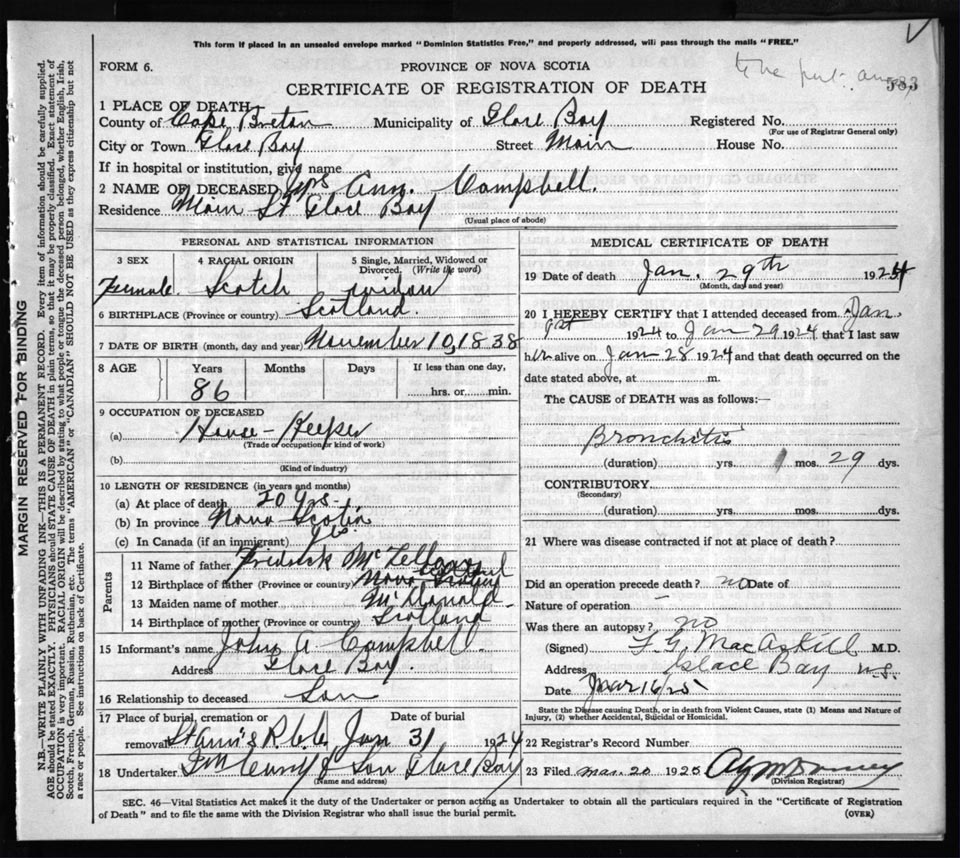 This form if placed in an unsealed envelope marked "Dominion Statistics Free," and properly addressed, will pass through the mails "FREE."
FORM 6.
PROVINCE OF NOVA SCOTIA
583
CERTIFICATE OF REGISTRATION OF DEATH
1 PLACE OF DEATH
County of Cape Breton Municipality of Glace Bay Registered No.
(For use of Registrar General only)
City or Town Glace Bay Street Main House No.
If in hospital or institution, give name
2 NAME OF DECEASED Mrs Ann. Campbell.
Residence Main St Glace Bay
(Usual place of abode)
PERSONAL AND STATISTICAL INFORMATION
3 SEX 4 RACIAL ORIGIN 5 Single, Married, Widowed or Divorced. (Write the word)
Female. Scotch widow
6 BIRTHPLACE (Province or country) Scotland.
7 DATE OF BIRTH (month, day and year) November 10, 1838
8 AGE Years Months Days If less than one day,
86 hrs. or min.
9 OCCUPATION OF DECEASED
(a) House-Keeper
(Trade or occupation or kind of work)
(b)
(Kind of industry)
10 LENGTH OF RESIDENCE (in years and months)
(a) At place of death 20 yrs.
(b) In province Nova Scotia
(c) In Canada (if an immigrant)
Parents
11 Name of father Fridrick
12 Birthplace of father (Province or country) Nova Scotia
13 Maiden name of mother McDonald
14 Birthplace of mother (Province or country) Scotland
15 Informant's name John A Campbell.
Address Glace Bay.
16 Relationship to deceased Son
17 Place of burial, cremation or removal St Ann's R.C.C. Date of burial Jan 31 1924
18 Undertaker & Son Glace Bay
(Name and address)
MEDICAL CERTIFICATE OF DEATH
19 Date of death Jan. 29th 1924
(Month, day and year)
20 I HEREBY CERTIFY that I attended deceased from Jan.
1924 to Jan 29 1924 that I last saw
her alive on Jan 28 1924 and that death occurred on the
date stated above, at m.
The CAUSE of DEATH was as follows:—
Bronchitis
(duration) yrs. 1 mos. 29 dys.
CONTRIBUTORY.
(Secondary)
(duration) yrs. mos. dys.
21 Where was disease contracted if not at place of death?
Did an operation precede death? no Date of
Nature of operation —
Was there an autopsy? no
(Signed) F. G. MacAskill M.D.
Address Glace Bay N.S.
Date
State the Disease causing Death, or in death from Violent Causes, state (1) Means and Nature of
Injury, (2) whether Accidental, Suicidal or Homicidal.
22 Registrar's Record Number
23 Filed Mar. 20 1925
(Division Registrar)
SEC. 46—Vital Statistics Act makes it the duty of the Undertaker or person acting as Undertaker to obtain all the particulars required in the "Certificate of Registration
of Death" and to file the same with the Division Registrar who shall issue the burial permit.
(OVER)
MARGIN RESERVED FOR BINDING
N.B.—WRITE PLAINLY WITH UNFADING INK—THIS IS A PERMANENT RECORD. Every item of information should be carefully supplied.
AGE should be stated EXACTLY. PHYSICIANS should STATE CAUSE OF DEATH in plain terms, so that it may be properly classified. Exact statement of
OCCUPATION is very important. RACIAL ORIGIN will be described by stating to what people or tongue the deceased person belonged, whether English, Irish,
Scotch, French, German, Russian, Ruthenian, etc. The terms "AMERICAN" or "CANADIAN" SHOULD NOT BE USED as they express citizenship but not
a race or people. See instructions on back of Certificate.